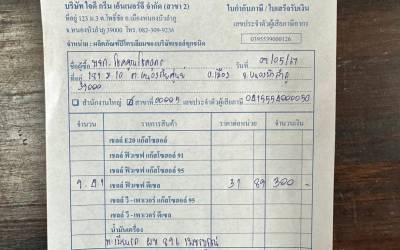 บริษัท ไอดี กรีน เอ็นเนอร์ยี่ จำกัด (สาขา 2)
ใบกำกับภาษี / ใบเสร็จรับเงิน
ที่อยู่ 123 ม.3 ต.โพธิ์ชัย อ.เมืองหนองบัวลำภู
จ.หนองบัวลำภู 39000 โทร. 082-309-9236
เลขประจำตัวผู้เสียภาษีอากร
0395539000126
จำหน่าย : ผลิตภัณฑ์ปิโตรเลียมของบริษัทเชลล์ทุกชนิด
ชื่อผู้ซื้อ หจก.
วันที่ 04/05/67
ที่อยู่ 131 ม.10 ต. อ.เมือง จ.หนองบัวลำภู
39000
สำนักงานใหญ่ สาขาที่ 00005 เลขประจำตัวผู้เสียภาษี
จำนวน รายการสินค้า ราคาต่อหน่วย จำนวนเงิน
เชลล์ E20 แก๊สโซฮอล์
เชลล์ ฟิวเซฟ แก๊สโซฮอล์ 91
เชลล์ ฟิวเซฟ แก๊สโซฮอล์ 95
9.41 เชลล์ ฟิวเซฟ ดีเซล 31 89 300 -
เชลล์ วี-เพาเวอร์ แก๊สโซฮอล์ 95
เชลล์ วี-เพาเวอร์ ดีเซล
น้ำมันเครื่อง
ทะเบียนรถ